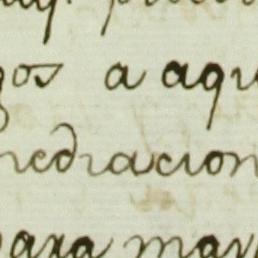 gos a aqu
mediacion
para man